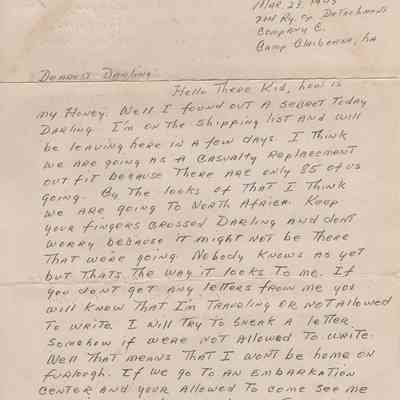 Mar. 23, 1943
2nd Ry. Op. Detachment
Company C.
Camp Claiborne, La
Dearest Darling:
Hello There Kid, how is
my Honey. Well I found out a secret today
Darling. I'm on the shipping list and will
be leaving here in a few days. I think
we are going as a casualty replacement
out fit because there are only 85 of us
going. By the looks of that I think
we are going to North Africa. Keep
your fingers crossed Darling and dont
worry because it might not be there
that we're going. Nobody knows as yet
but thats the way it looks to me. If
you dont get any letters from me you
will know that I'm traveling or not allowed
to write. I will try to sneak a letter
somehow if were not allowed to write.
Well that means that I wont be home on
furlough. If we go to an embarkation
center and your allowed to come see me